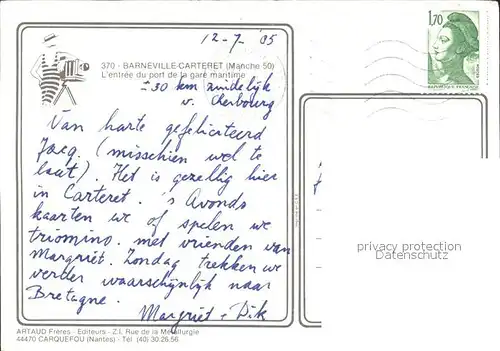 12-7-'85
1,70
370 - BARNEVILLE-CARTERET (Manche 50)
L'entrée du port de la gare maritime
± 30 km zuidelijk
v. Cherbourg
Van harte gefeliciteerd
Jacq. (misschien wel te
laat). Het is gezellig hier
in Carteret. 's Avonds
kaarten we of spelen we
triomino. met vrienden van
Margriet. Zondag trekken we
verder waarschijnlijk naar
Bretagne.
Margriet + Dik
privacy protection
Datenschutz
ARTAUD Frères - Editeurs - Z.I. Rue de la Métallurgie
44470 CARQUEFOU (Nantes) - Tél (40) 30.26.56